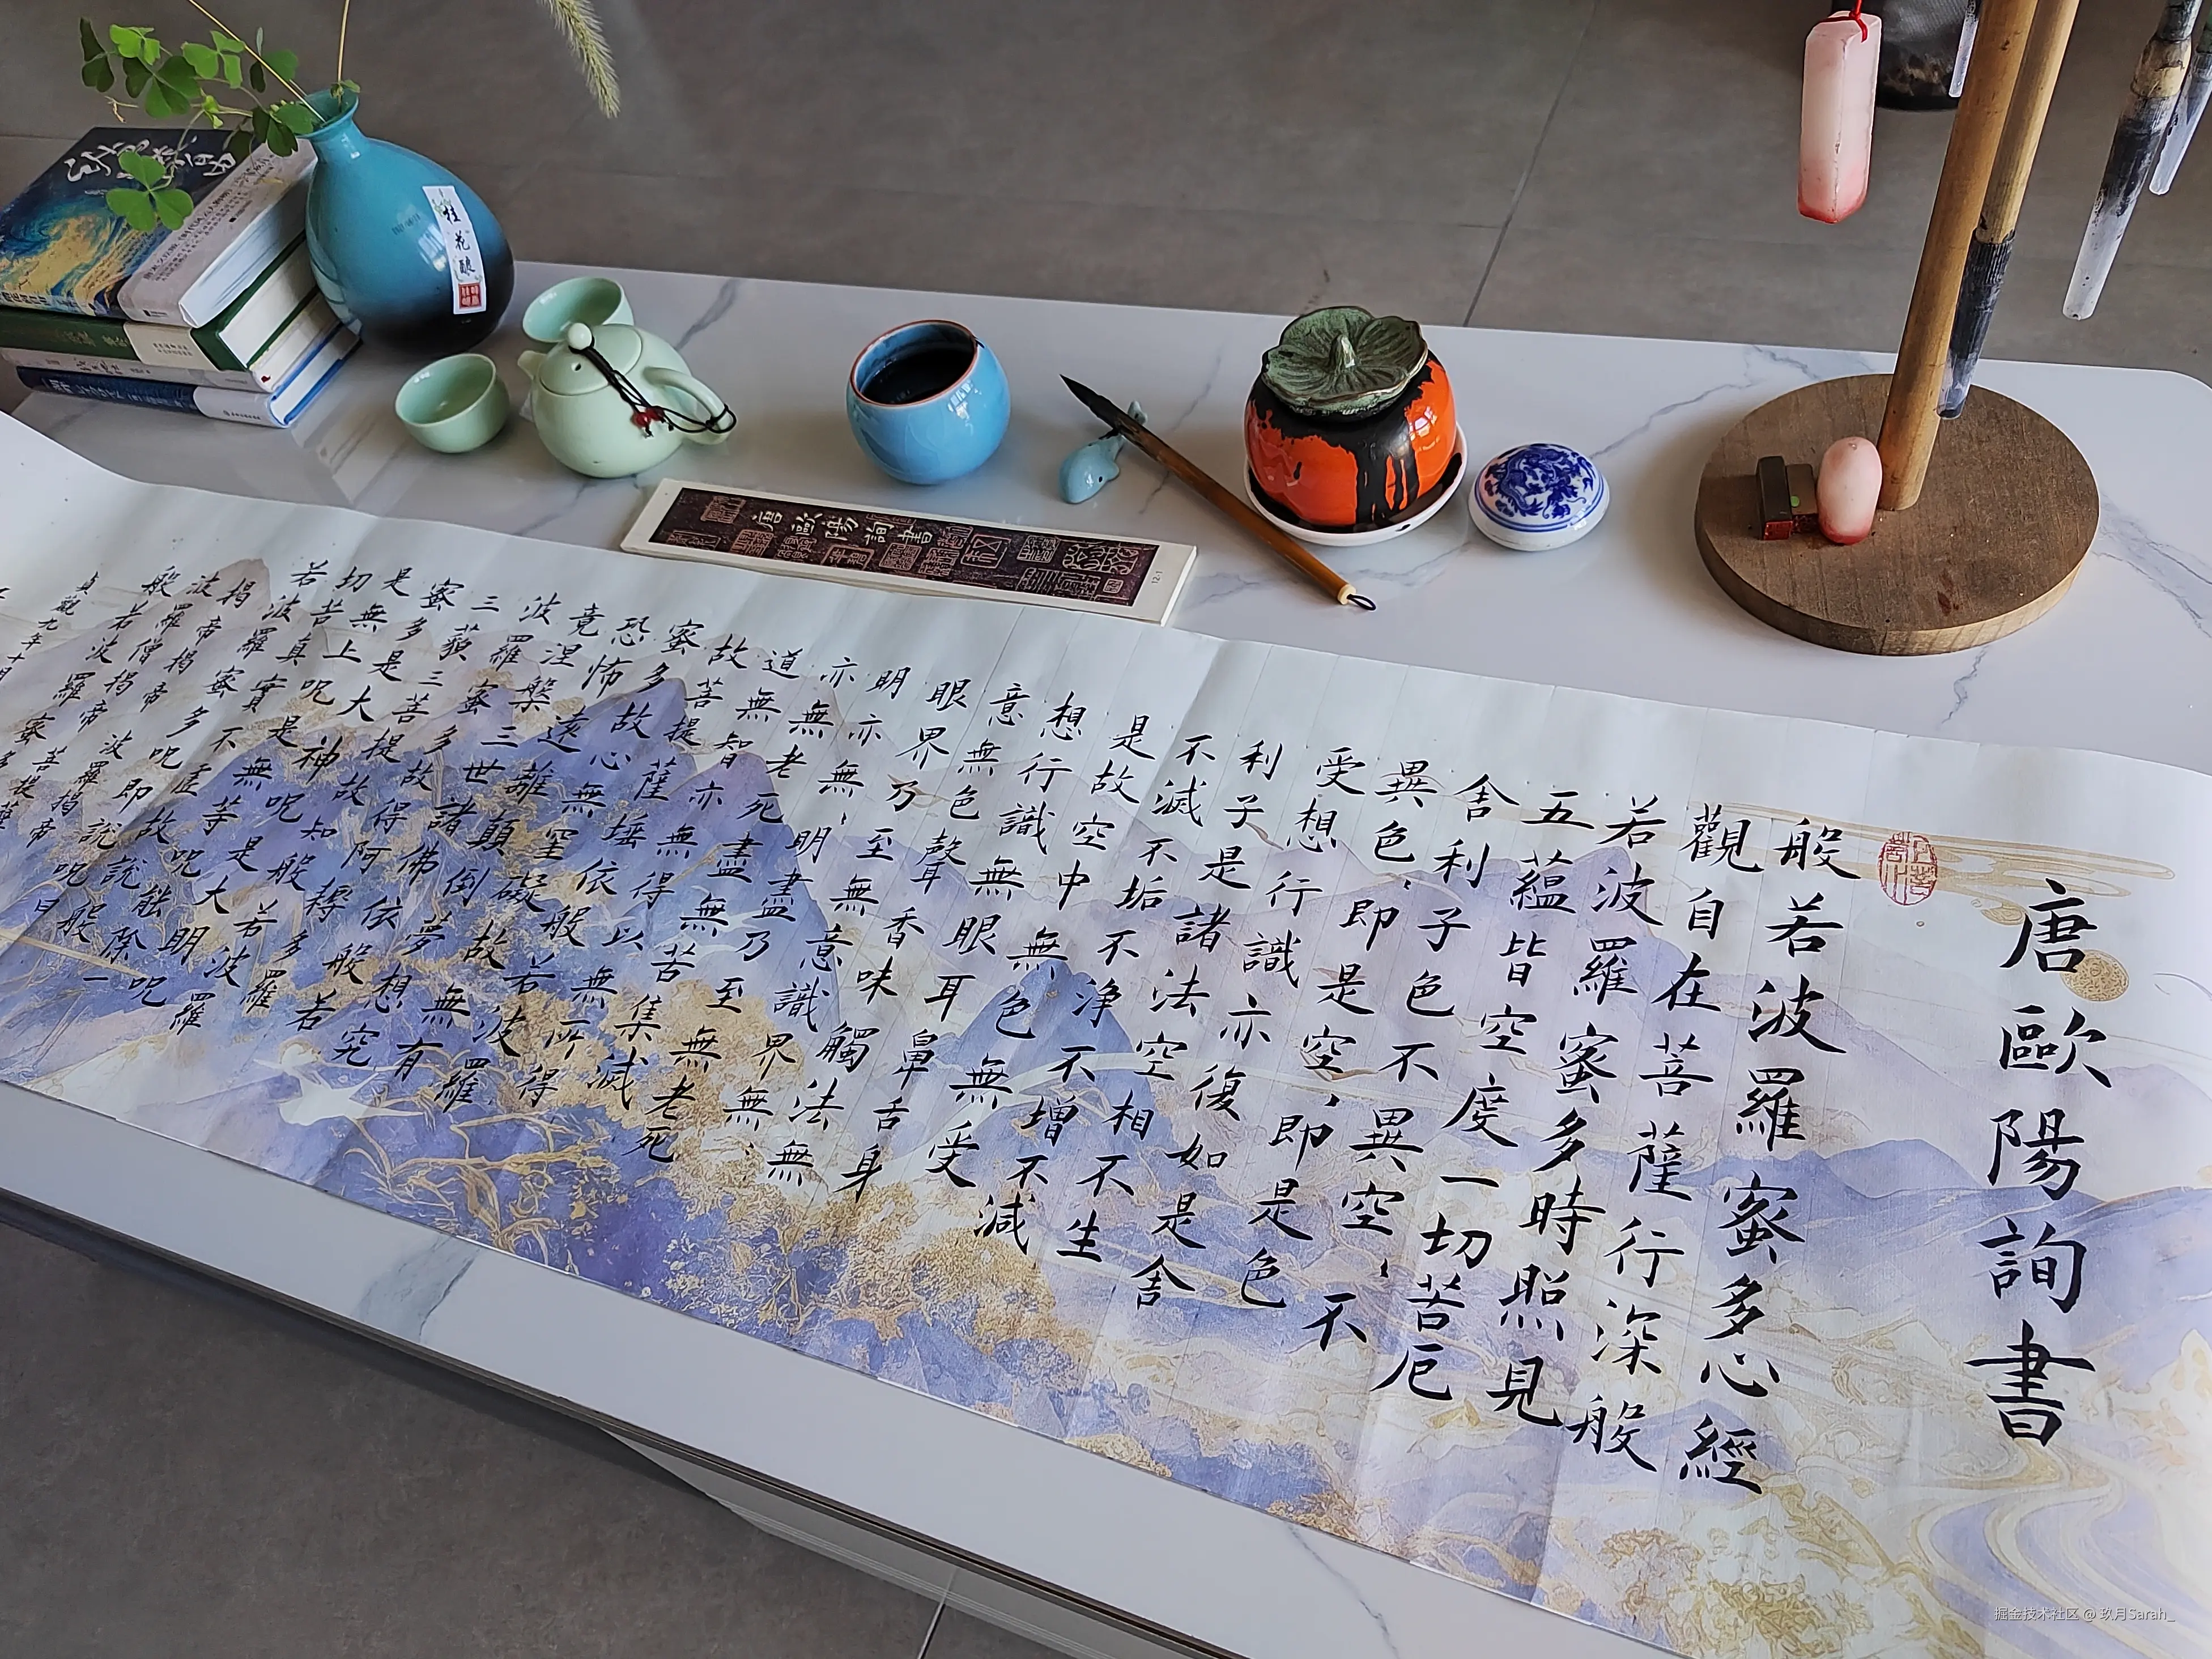 桂花酿
唐歐陽詢書
12.1
唐歐陽詢書
般若波羅蜜多心經
觀自在菩薩行深般
若波羅蜜多時照見
五蘊皆空度一切苦厄
舍利子色不異空、不
異色、即是空、即是色
受想行識亦復如是舍
利子是諸法空相不生
不滅不垢不净不增不減
是故空中無色無受
想行識無眼耳鼻舌身
意無色聲香味觸法無
眼界乃至無意識界無、
明亦無、明盡乃至無老死
亦無老死盡無苦集滅
道無智亦無得以無所得
故菩提薩埵依般若波羅
蜜多故心無罣礙故無有
恐怖遠離顛倒夢想究
竟涅槃三世諸佛依般若
波羅蜜多故得阿耨多羅
三藐三菩提故知般若波羅
蜜多是大神呪是大明呪
是無上呪是無等呪能除一
切苦真實不虛故說般
若波羅蜜多呪即說呪曰
揭帝揭帝波羅揭帝
波羅僧揭帝菩提薩
般若波羅蜜多
貞觀九年十月
掘金技术社区 @ 玖月Sarah_